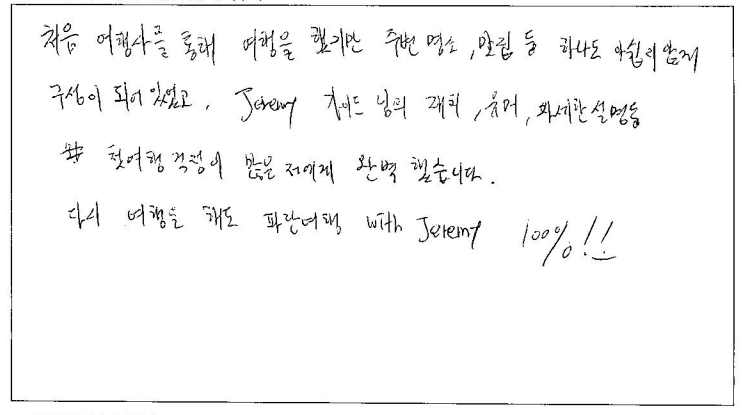 처음 여행사를 통해 여행을 했지만 주변 명소, 알림 등 하나도 아쉽지 않게
구성이 되어 있었고, Jeremy 가이드 님의 재치, 유머, 자세한 설명등
첫여행 걱정이 많은 저에게 완벽 했습니다.
다시 여행을 해도 파란여행 with Jeremy 100%!!